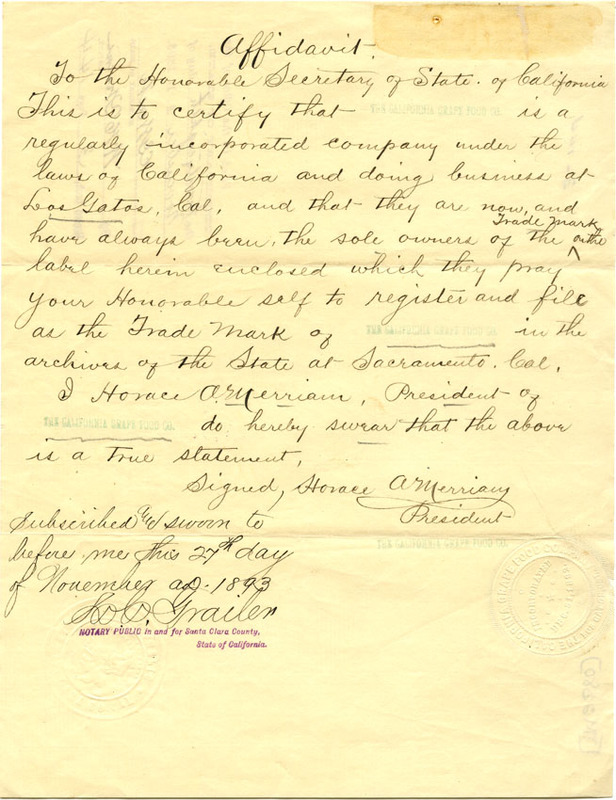 Affidavit.
To the Honorable Secretary of State. of California
This is to certify that THE CALIFORNIA GRAPE FOOD CO. is a
regularly incorporated company under the
laws of California and doing business at
Los Gatos, Cal, and that they are now, and
have always been, the sole owners of the Trade Mark on the
label herein enclosed which they pray
your Honorable self to register and file
as the Trade Mark of THE CALIFORNIA GRAPE FOOD CO. in the
archives of the State at Sacramento, Cal,
I Horace A. Merriam, President of
THE CALIFORNIA GRAPE FOOD CO. do hereby swear that the above
is a true statement,
Signed, Horace A Merriam
President
THE CALIFORNIA GRAPE FOOD CO.
Subscribed and sworn to
before me this 27th day
of November AD. 1893
NOTARY PUBLIC in and for Santa Clara County,
State of California.